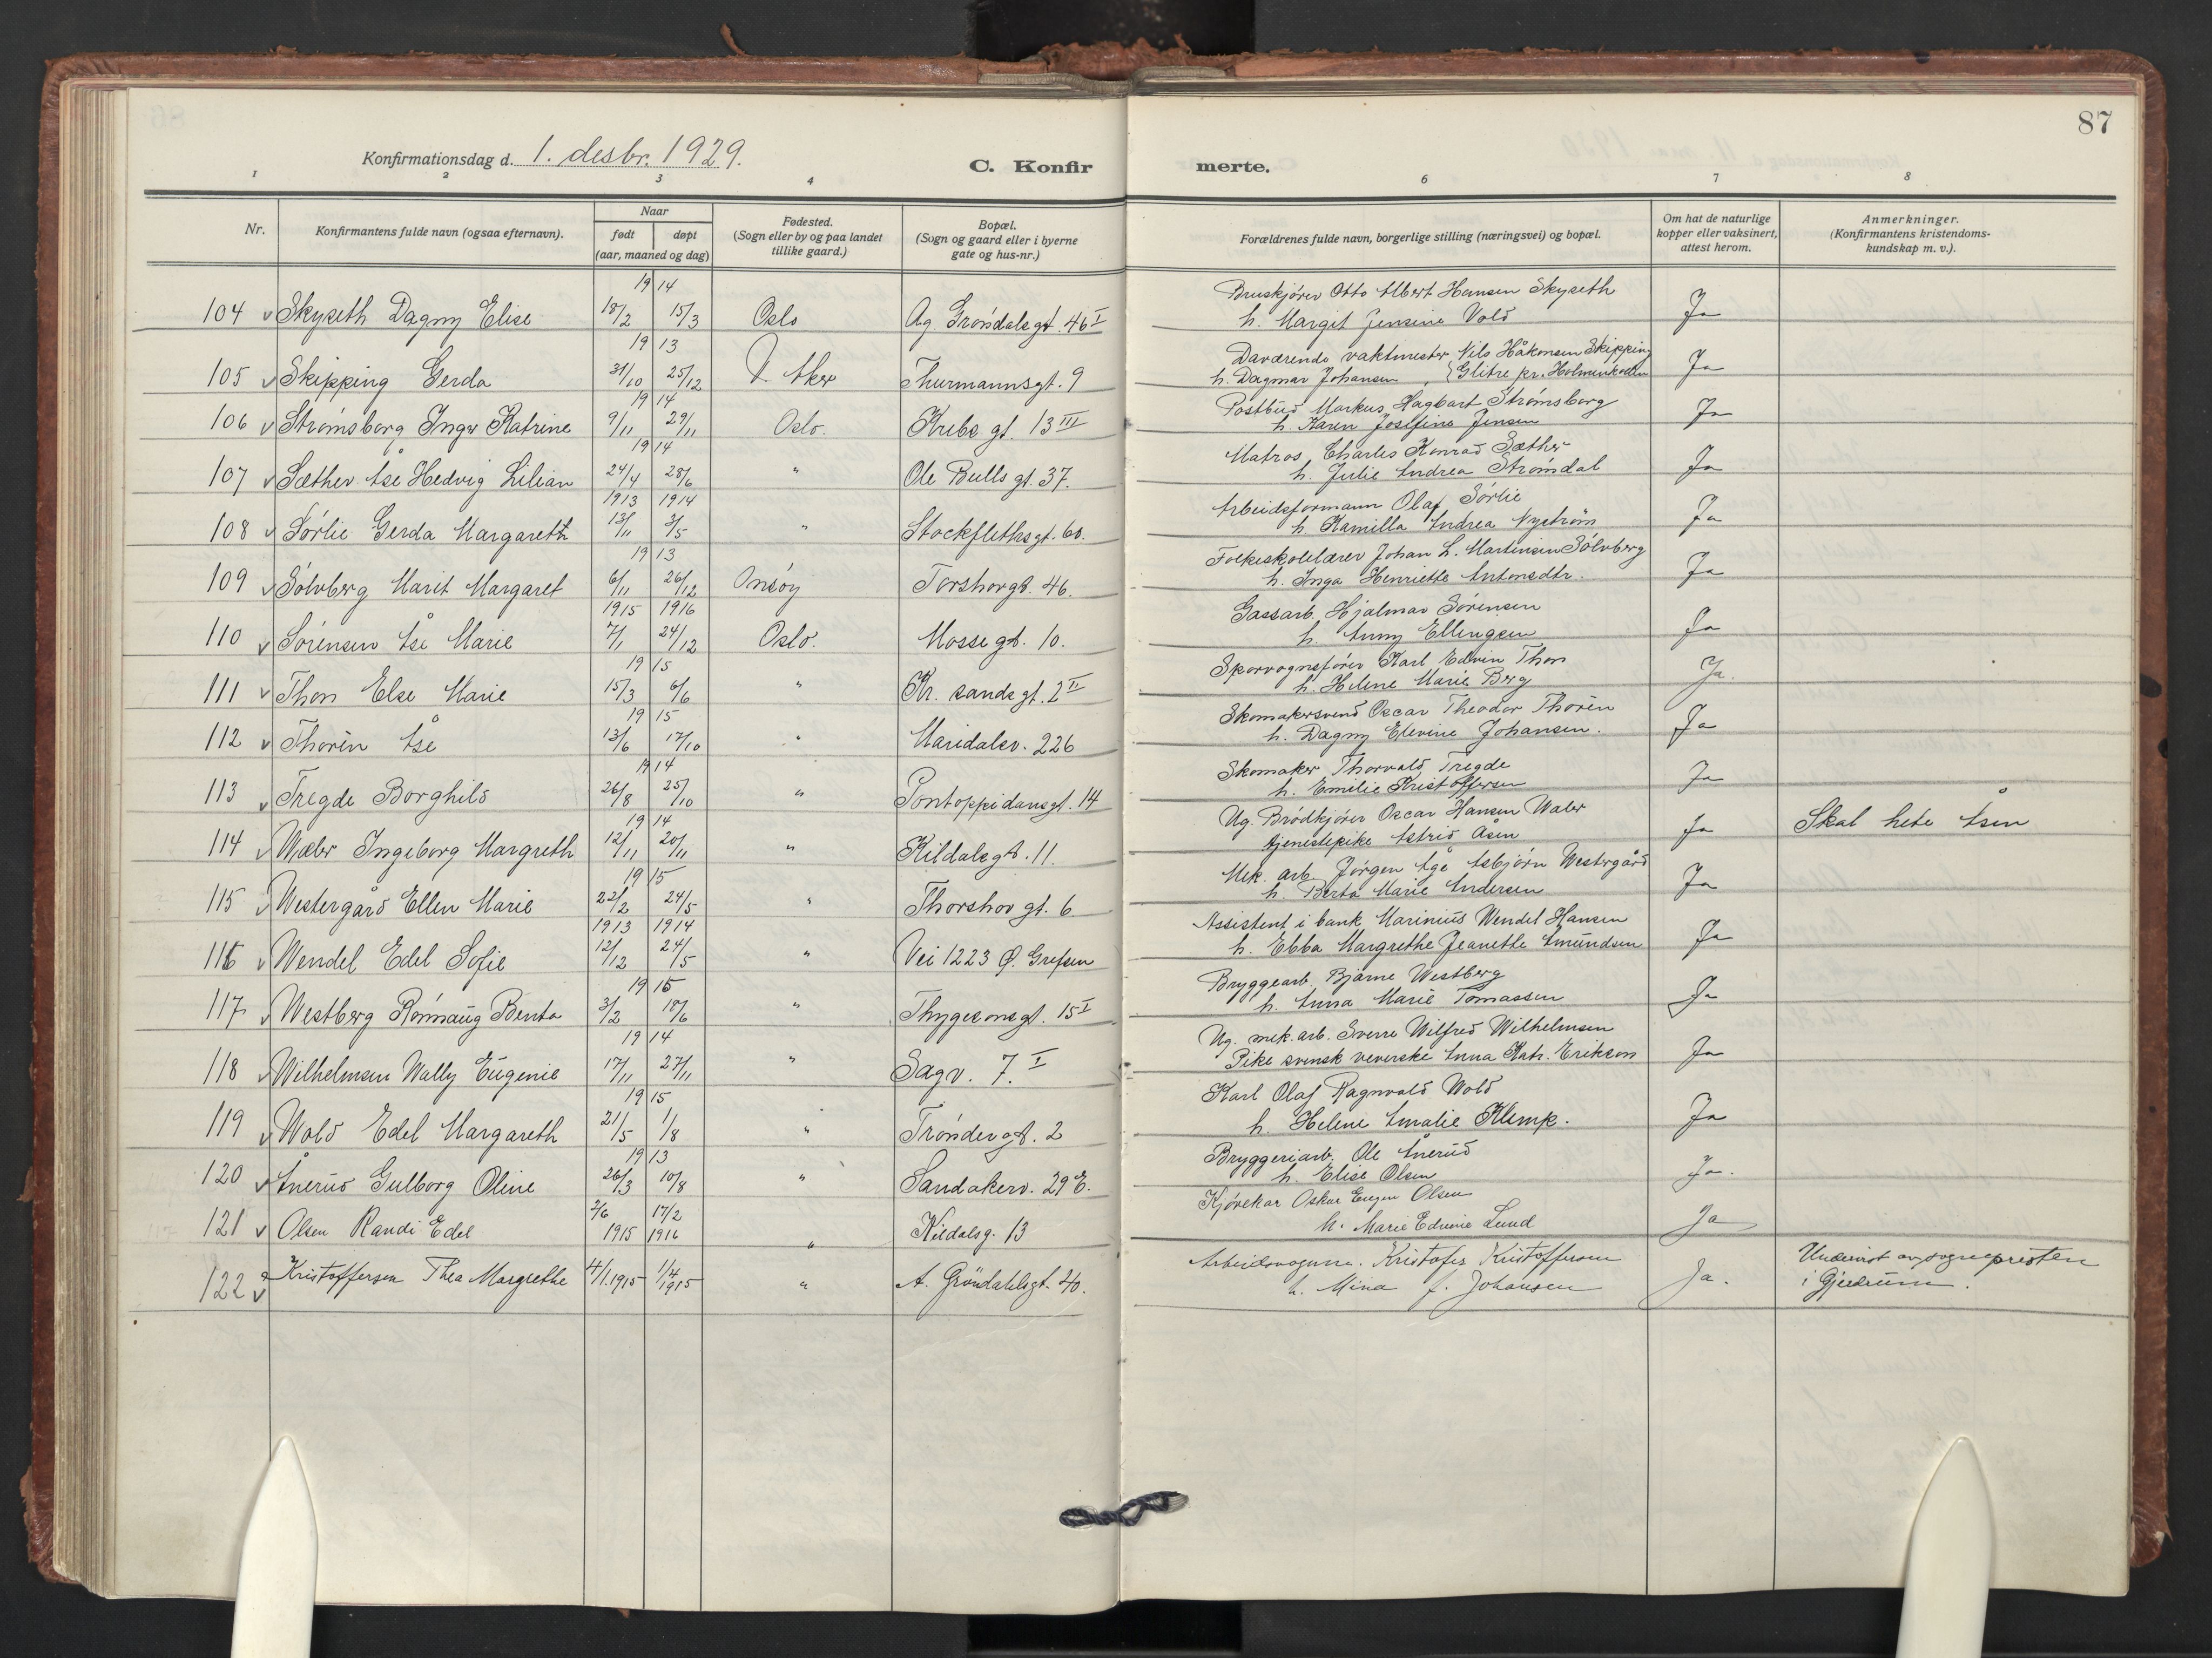 87
Konfirmationsdag d. 1. desbr. 1929.
C. Konfirmerte.
1 2 3 4 6 7 8
Nr.
Konfirmantens fulde navn (ogsaa efternavn).
Naar
født døpt
(aar, maaned og dag)
Fødested.
(Sogn eller by og paa landet
tillike gaard.)
Bopæl.
(Sogn og gaard eller i byerne
gate og hus-nr.)
Forældrenes fulde navn, borgerlige stilling (næringsvei) og bopæl.
Om hat de naturlige
kopper eller vaksinert,
attest herom.
Anmerkninger.
(Konfirmantens kristendoms-
kundskap m. v.).
19 14 Bruskjører Otto Albert Hansen Skyseth
104 v Skyseth Dagny Elise 18/2 15/3 Oslo Ag. Grøndalsgt. 46 I h. Margit Jensine Vold Ja
19 13 Daværende vaktmester Nils Håkonsen Skipping
105 v Skipping Gerda 31/10 25/12 V. Aker Thurmannsgt. 9 h. Dagmar Johansen, Glitre pr. Holmenkollen Ja
19 14 Postbud Markus Hagbart Strømsborg
106 v Strømsborg Inger Katrine 9/11 29/11 Oslo. Krebs gt. 13 III h. Karen Josefine Jensen Ja
19 14 Matros Charles Konrad Sæther
107 v Sæther Åse Hedvig Lilian 24/4 28/6 " Ole Bulls gt. 37. h. Julie Andrea Strømdal Ja
1913 1914 Arbeidsformann Olaf Sørlie
108 v Sørlie Gerda Margareth 13/11 3/5 " Stockflethsgt. 60. h. Kamilla Andrea Nystrøm Ja
19 13 Folkeskolelærer Johan L. Martinsen Sølvberg
109 v Sølvberg Marit Margaret 6/11 26/12 Onsøy Torshovgt. 46. h. Inga Henriette Antonsdtr. Ja
1915 1916 Gassarb. Hjalmar Sørensen
110 v Sørensen Åse Marie 7/1 24/12 Oslo. Mossegt. 10. h. Anny Ellingsen Ja
19 15 Sporvognsfører Karl Edvin Thon
111 v Thon Else Marie 15/3 6/6 " Kr. sandsgt. 2 II h. Helene Marie Berg Ja.
19 15 Skomakersvend Oscar Theodor Thorén
112 v Thorén Åse 13/6 17/10 " Maridalsv. 226 h. Dagny Elevine Johansen. Ja
19 14 Skomaker Thorvald Tregde
113 v Tregde Borghild 26/8 25/10 " Pontoppidansgt. 14 h. Emilie Kristoffersen Ja
19 14 Ug. Brødkjører Oscar Hansen Waler
114 v Wæler Ingeborg Margreth 12/11 20/11 " Kildalsgt. 11. tjenestepike Astrid Åsen Ja Skal hete Åsen
19 15 Mek. arb. Jørgen Åge Asbjørn Westergård
115 v Westergård Ellen Marie 22/2 24/5 " Thorshovgt. 6 h. Berta Marie Andersen Ja
1913 1914 Assistent i bank Marinius Wendel Hansen
116 v Wendel Edel Sofie 12/12 24/5 " Vei 1223 Ø. Grefsen h. Ebba Margrethe Jeanette Amundsen Ja
19 15 Bryggearb. Bjarne Westberg
117 v Westberg Rønnaug Benta 3/2 18/6 " Thygesonsgt. 15 I h. Anna Marie Tomassen Ja
19 14 Ug. mek. arb. Sverre Wilfred Wilhelmsen
118 v Wilhelmsen Wally Eugenie 17/11 27/11 " Sagv. 7. I Pike svensk veverske Anna Katr. Erikson Ja
19 15 Karl Olaf Ragnvald Wold
119 v Wold Edel Margareth 21/5 1/8 " Trøndergt. 2 h. Helene Amalie Klemp. Ja
19 13 Bryggeriarb. Ole Ånerud
120 v Ånerud Gulborg Oline 26/3 10/8 " Sandakerv. 29 E. h. Elise Olsen Ja.
2/6 17/2 Kjørekar Oskar Eugen Olsen
121 v Olsen Randi Edel 1915 1916 " Kildalsg. 13 h. Marie Edvine Lund Ja
Arbeidsvognm. Kristofer Kristoffersen Undervist av sognepresten
122 v Kristoffersen Thea Margrethe 4/1.1915 1/4 1915 " A. Gröndahlsgt. 40. h. Mina f. Johansen Ja. i Gjerdrum.